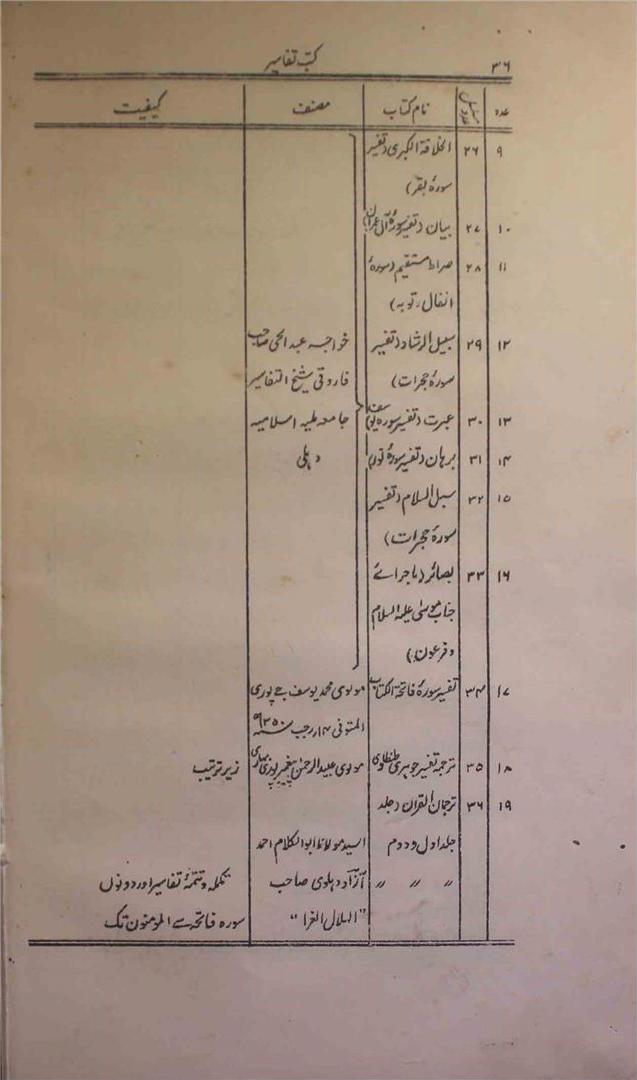 ۳۶ کتب تفاسیر
عدد مسلسل عدد نام کتاب مصنف کیفیت
۹ ۲۶ الخلافة الکبری (تفسیر
سورۂ بقر)
۱۰ ۲۷ بیان (تفسیر سورۂ آل عمران)
۱۱ ۲۸ صراط مستقیم (سورۂ
انفال، توبہ)
۱۲ ۲۹ سبیل الرشاد (تفسیر خواجہ عبدالحی صاحب
سورۂ حجرات) فاروقی شیخ التفاسیر
۱۳ ۳۰ عبرت (تفسیر سورہ یوسف) جامعہ ملیہ اسلامیہ
۱۴ ۳۱ برہان (تفسیر سورۂ نور) دہلی
۱۵ ۳۲ سبل السلام (تفسیر
سورۂ حجرات)
۱۶ ۳۳ بصائر (ماجرائے
جناب موسیٰ علیہ السلام
و فرعون)
۱۷ ۳۴ تفسیر سورۂ فاتحة الکتاب مولوی محمد یوسف جے پوری
المتوفی ۱۴ رجب
۱۸ ۳۵ ترجمہ تفسیر جوہری طنطاوی مولوی عبید الرحمٰن پیغمبرپوری بہاری زیر ترتیب
۱۹ ۳۶ ترجمان القرآن (جلد
جلد اول و دوم السید مولانا ابوالکلام احمد
〃 〃 〃 آزاد دہلوی صاحب تکملہ و تتمۂ تفاسیر اور دونوں
"الہلال الغرا" سورہ فاتحہ سے المومنون تک